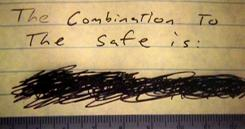 The Combination To
The Safe is: